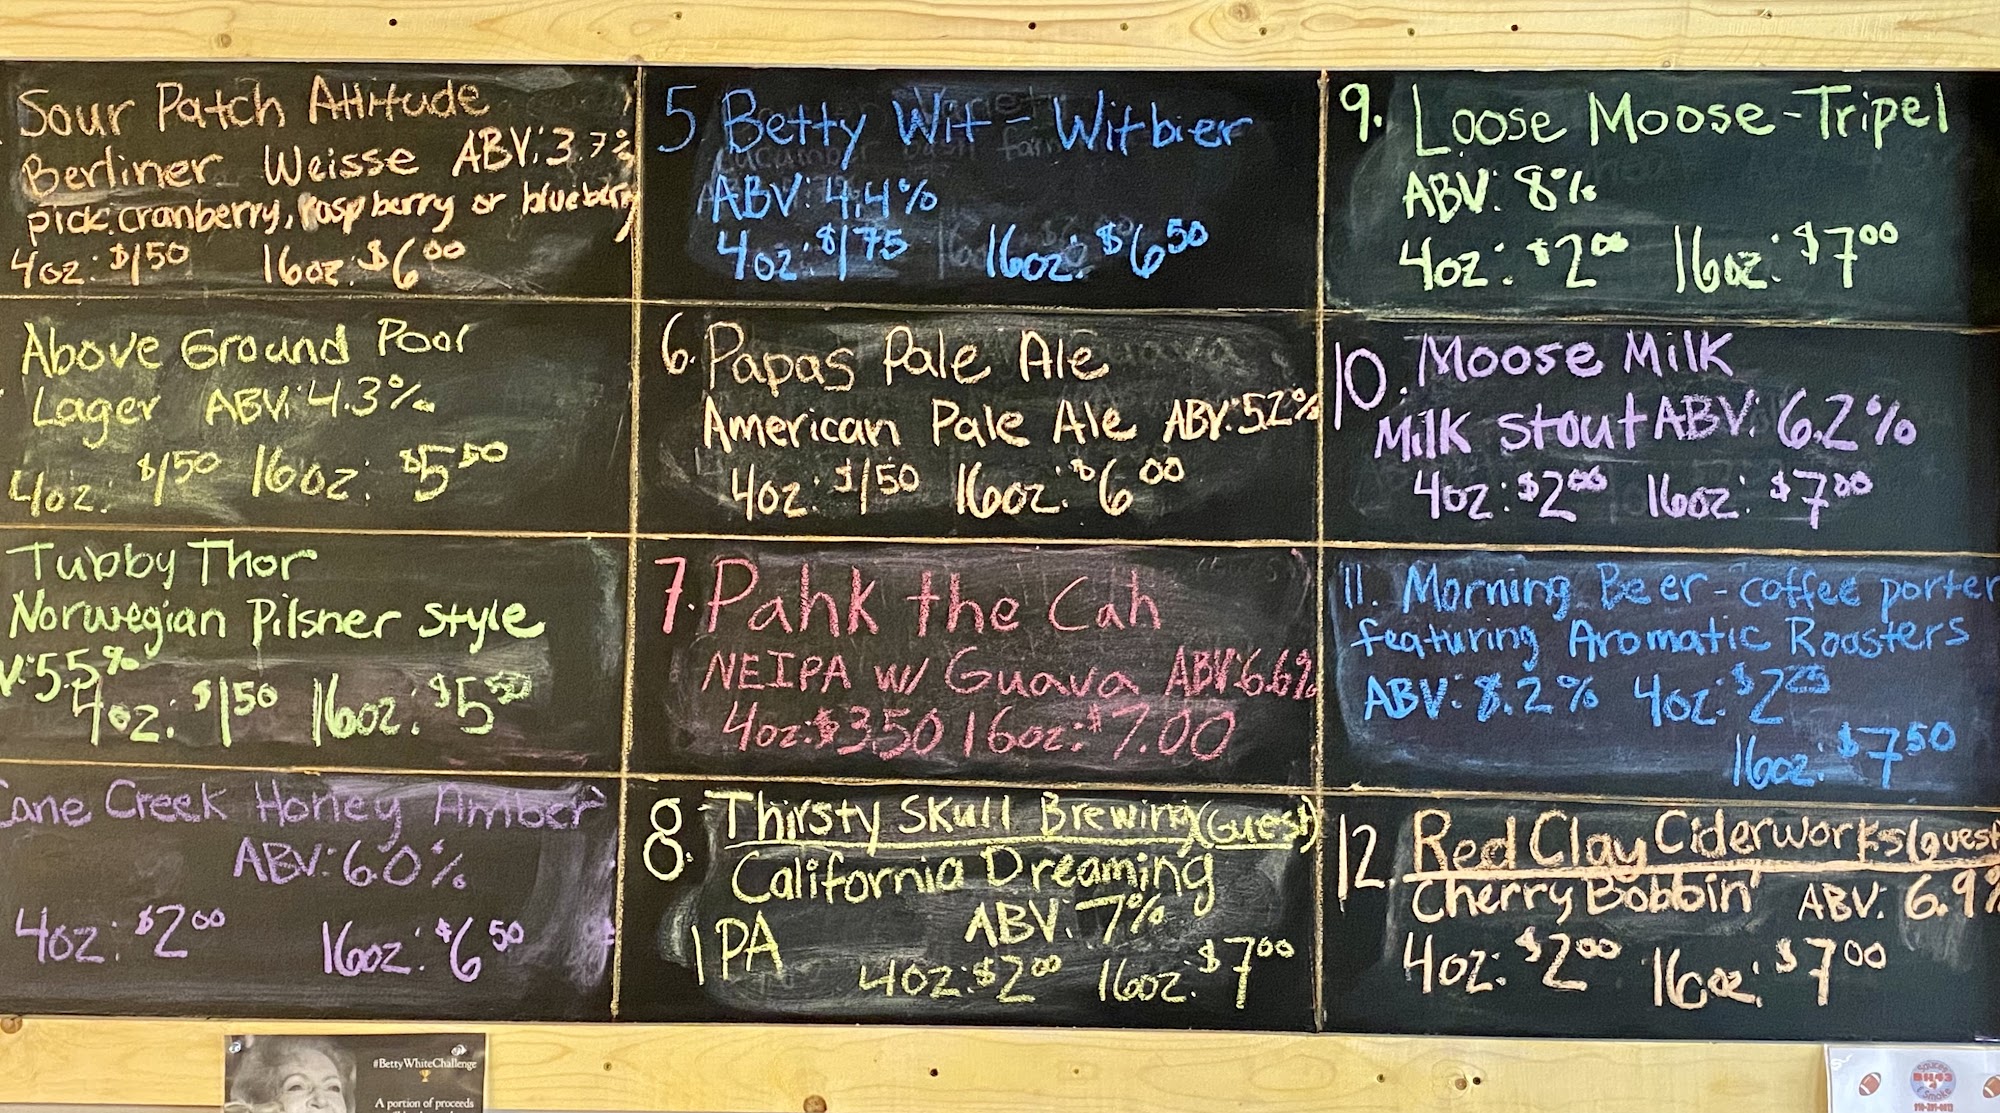 Sour Patch Attitude
Berliner Weisse ABV: 3.7%
pick: cranberry, raspberry or blueberry
4oz: $1 50 16oz: $6 00
Above Ground Pool
Lager ABV: 4.3%
4oz: $1 50 16oz: $5 50
Tubby Thor
Norwegian Pilsner style
V: 5.5%
4oz: $1 50 16oz: $5 50
Cane Creek Honey Amber
ABV: 6.0%
4oz: $2 00 16oz: $6 50
5 Betty Wit - Witbier
ABV: 4.4%
4oz: $1 75 16oz: $6 50
6. Papas Pale Ale
American Pale Ale ABV: 5.2%
4oz: $1 50 16oz: $6 00
7. Pahk the Cah
NEIPA w/ Guava ABV: 6.6%
4oz: $3.50 16oz: $7.00
8. Thirsty Skull Brewing (Guest)
California Dreaming
IPA ABV: 7%
4oz: $2 00 16oz: $7 00
9. Loose Moose - Tripel
ABV: 8%
4oz: $2 00 16oz: $7 00
10. Moose Milk
Milk Stout ABV: 6.2%
4oz: $2 00 16oz: $7 00
11. Morning Beer - coffee porter
featuring Aromatic Roasters
ABV: 8.2% 4oz: $2 25
16oz: $7 50
12. Red Clay Ciderworks (guest
Cherry Bobbin' ABV: 6.9%
4oz: $2 00 16oz: $7 00
#BettyWhiteChallenge
A portion of proceeds